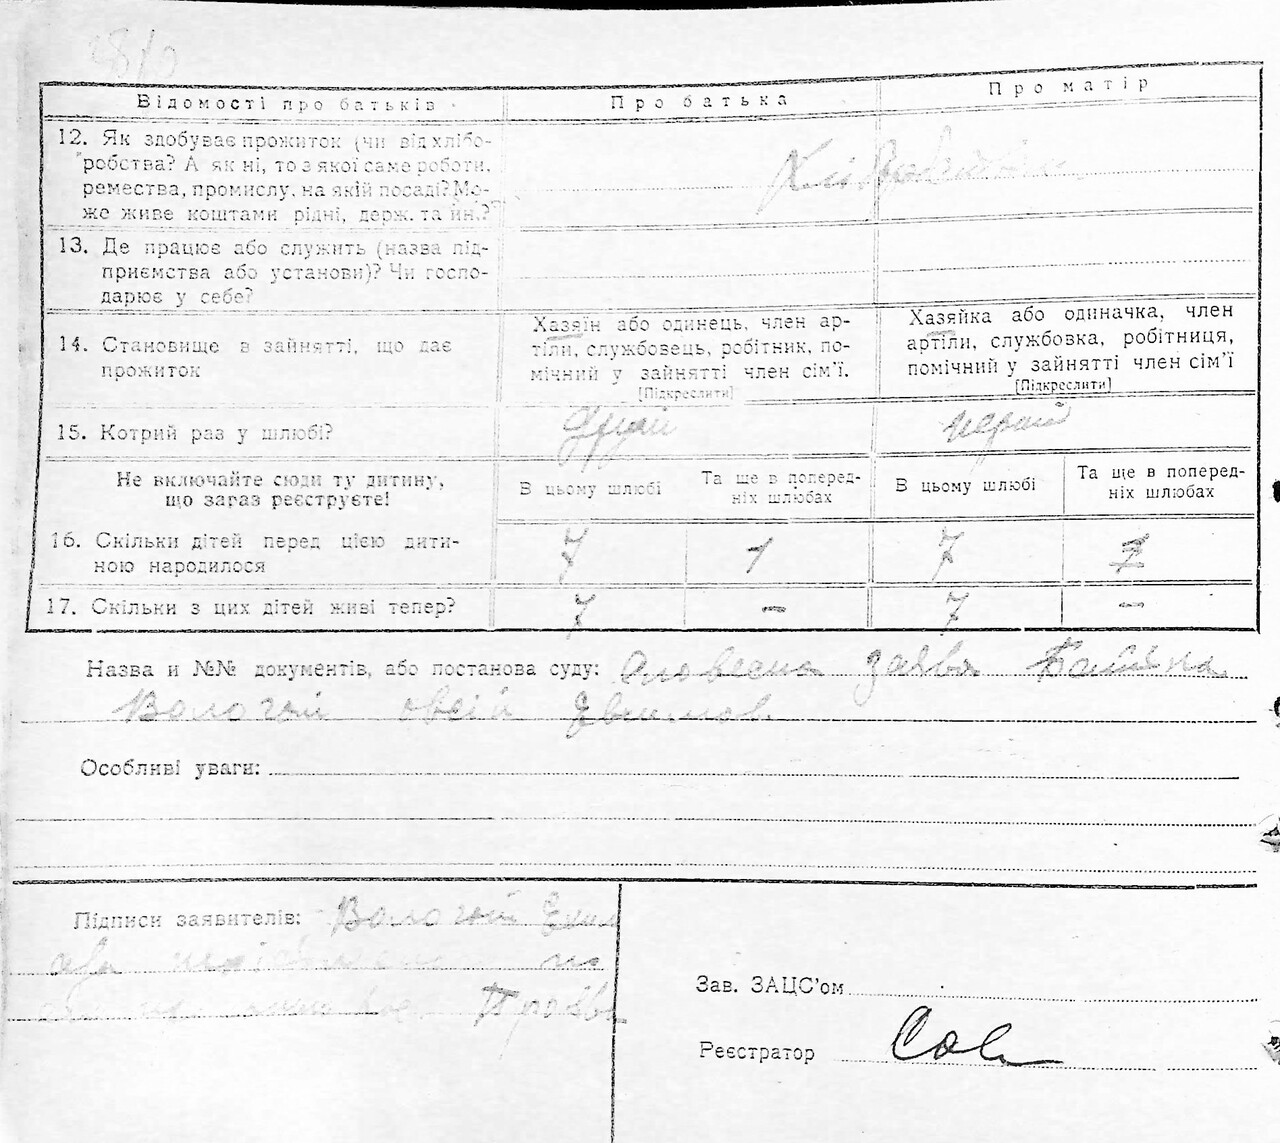 Відомості про батьків
Про батька
Про матір
12. Як здобуває прожиток (чи від хлібо-
робства? А як ні, то з якої саме роботи,
ремества, промислу, на якій посаді? Мо-
же живе коштами рідні, держ. та ин.?
13. Де працює або служить (назва під-
приємства або установи)? Чи госпо-
дарює у себе?
14. Становище в зайнятті, що дає
прожиток
Хазяїн або одинець, член ар-
тіли, службовець, робітник, по-
мічний у зайнятті член сім'ї.
[Підкреслити]
Хазяйка або одиначка, член
артіли, службовка, робітниця,
помічний у зайнятті член сім'ї
[Підкреслити]
15. Котрий раз у шлюбі?
другий
перший
Не включайте сюди ту дитину,
що зараз реєструєте!
В цьому шлюбі
Та ще в поперед-
ніх шлюбах
В цьому шлюбі
Та ще в поперед-
ніх шлюбах
16. Скільки дітей перед цією дити-
ною народилося
7 1 7
17. Скільки з цих дітей живі тепер?
7 – 7 –
Назва и №№ документів, або постанова суду: Словесна заява Батька
Вологий Овсій
Особливі уваги:
Підписи заявителів: Вологий
Зав. ЗАЦС'ом
Реєстратор